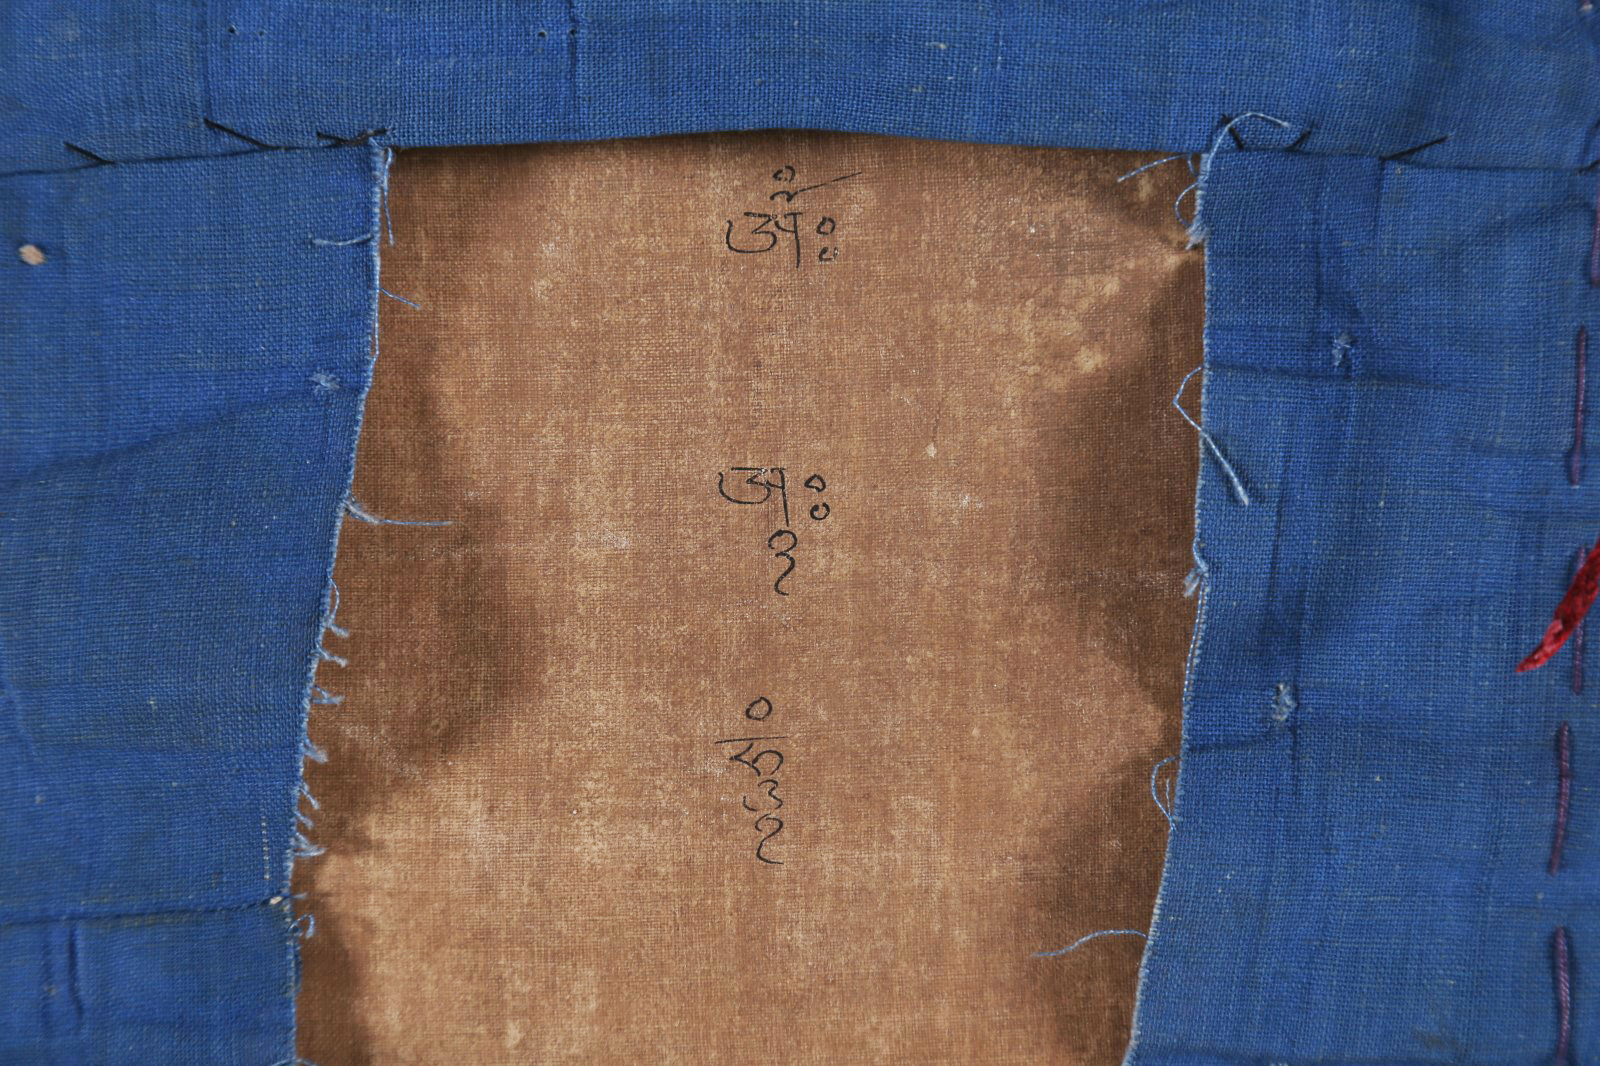 ཨོཾཿ
ཨཱཿ
ཧཱུཾ